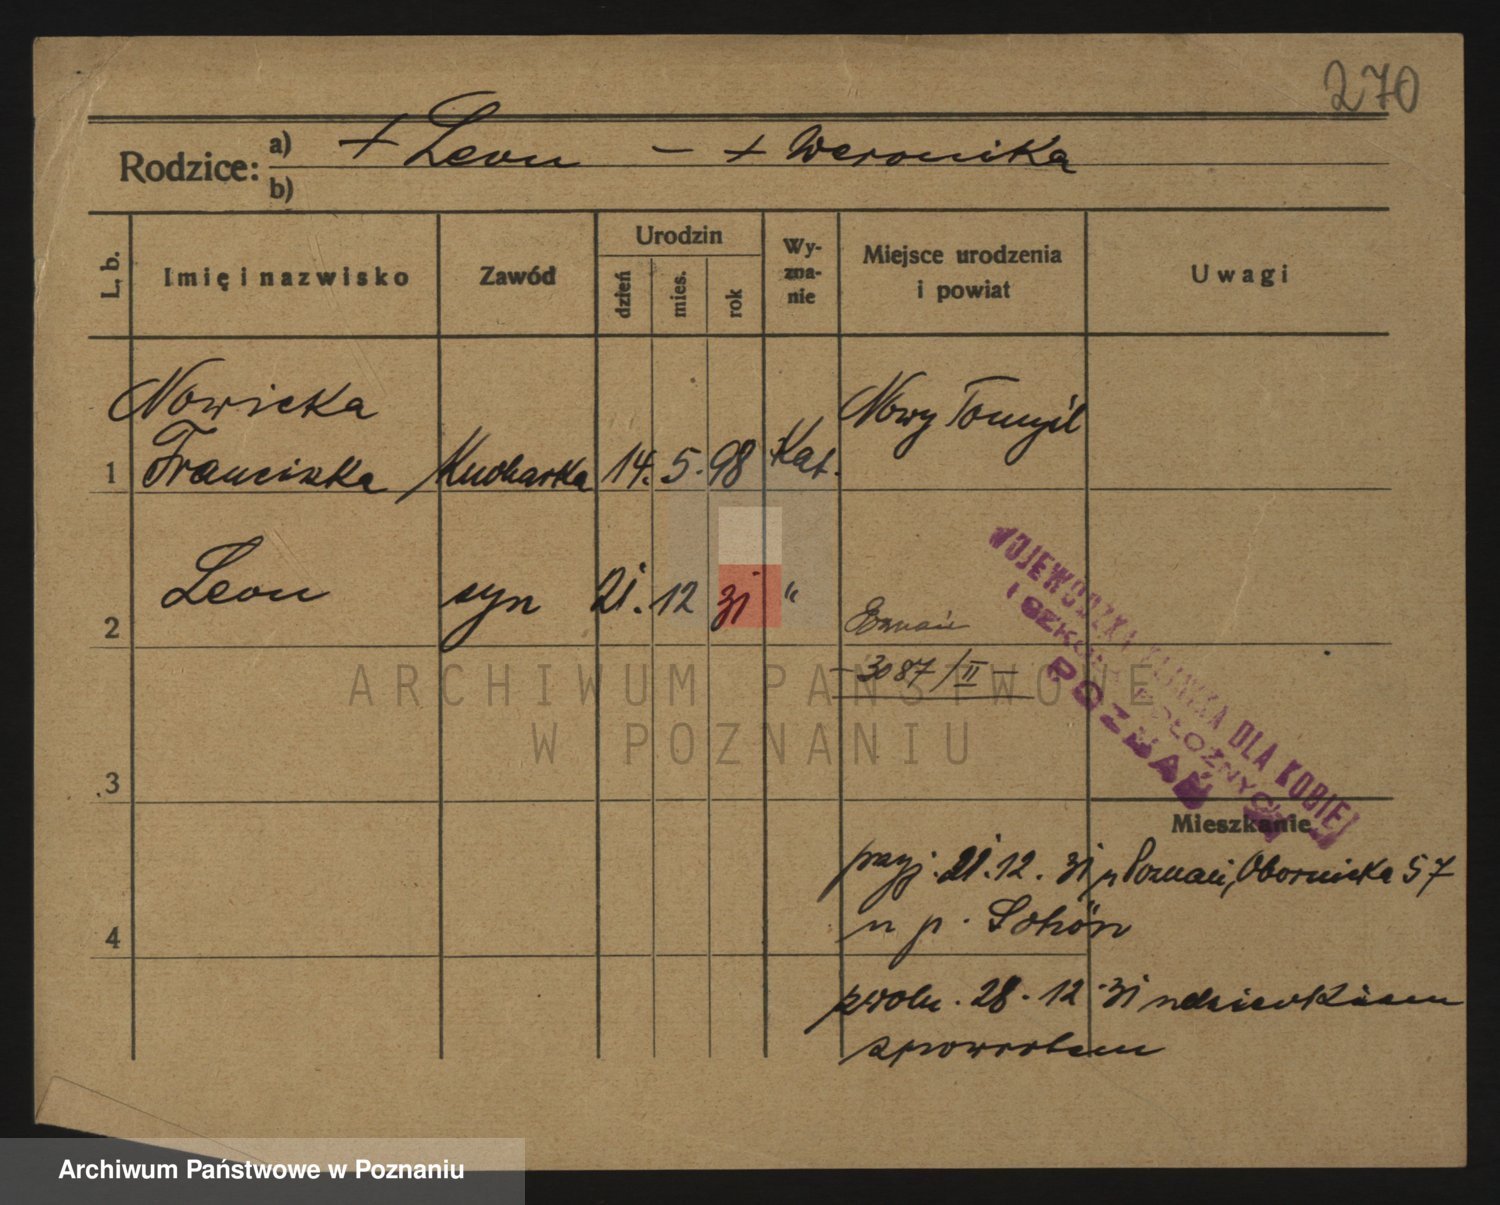 270
Rodzice: a) + Leon – + Weronika
b)
L. b.
Imię i nazwisko
Zawód
Urodzin
dzień
mies.
rok
Wy-
zna-
nie
Miejsce urodzenia
i powiat
Uwagi
Nowicka
1 Franciszka Kucharka 14. 5. 98 Kat. Nowy Tomyśl
2 Leon syn 21. 12 31 " Poznań
– 3087/II –
WOJEWÓDZKA KLINIKA DLA KOBIET
I SZKOŁA POŁOŻNYCH
POZNAŃ
3
Mieszkanie
przyj. 21. 12. 31 z Poznań, Obornicka 57
4 u p. Schön
zwoln. 28. 12. 31 z dzieckiem
zpowrotem
ARCHIWUM PAŃSTWOWE
W POZNANIU
Archiwum Państwowe w Poznaniu